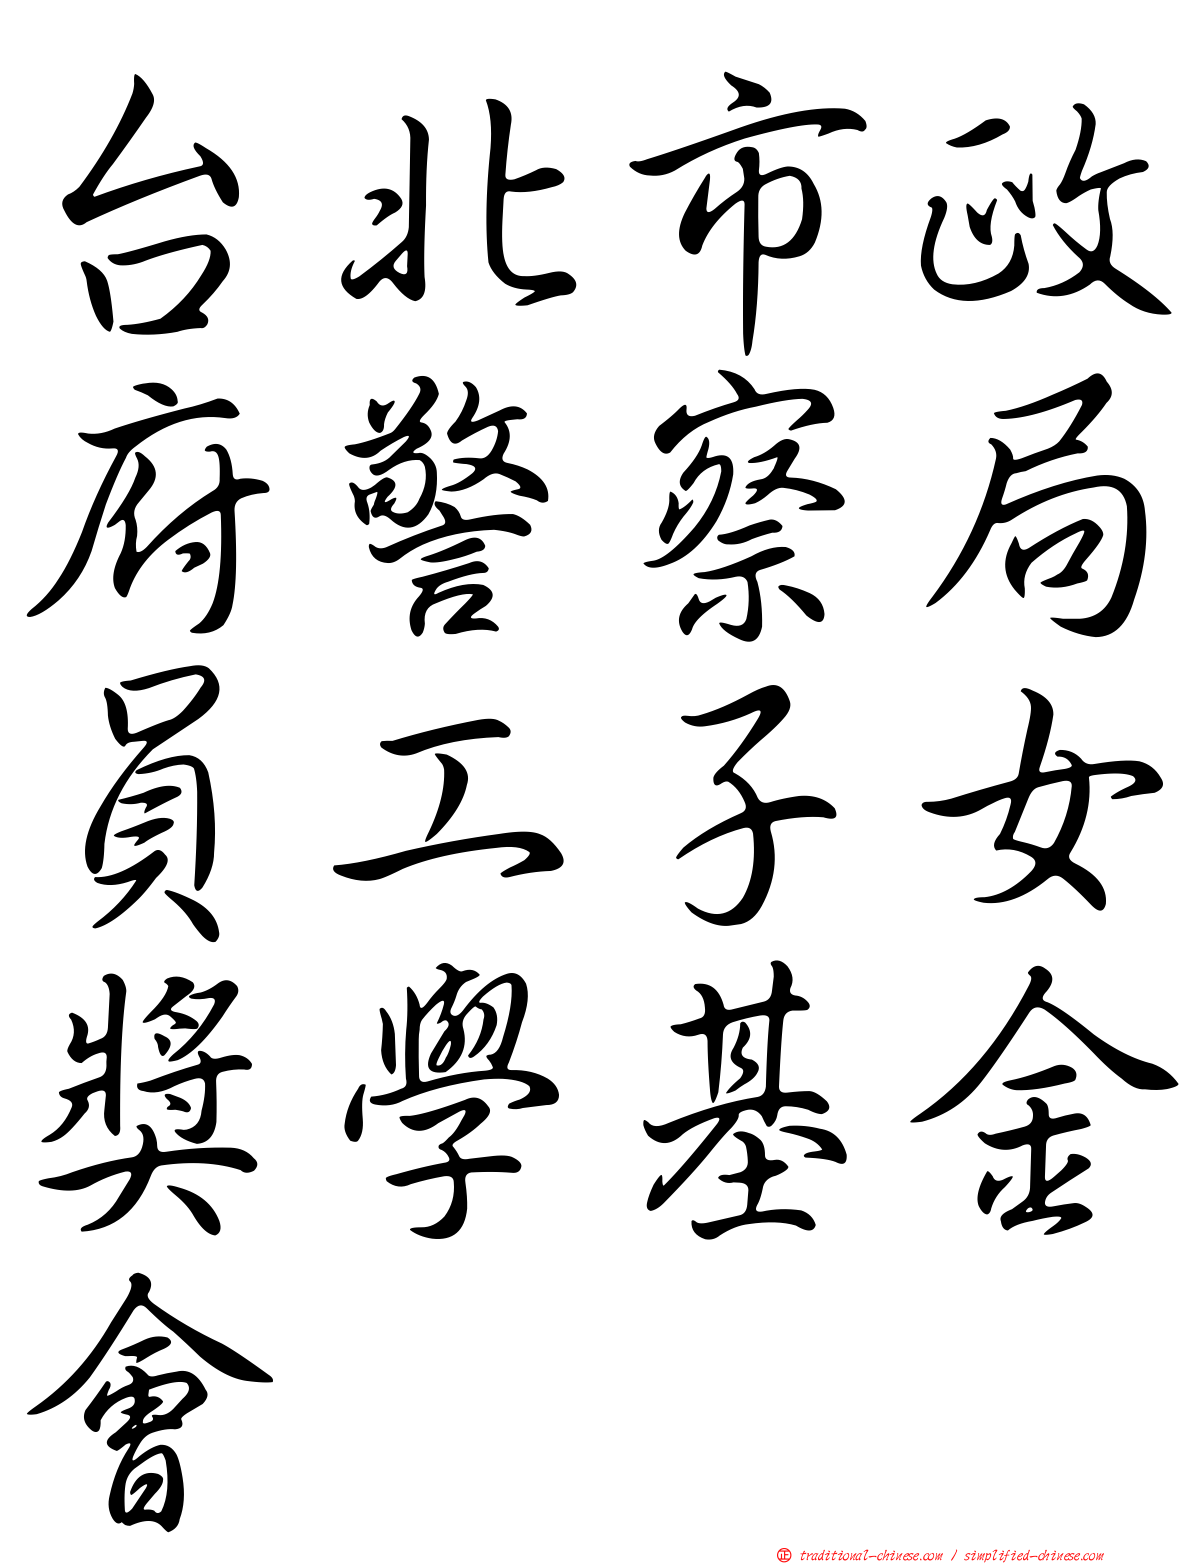 台北市政
府警察局
員工子女
獎學基金
會
正 traditional-chinese.com / simplified-chinese.com